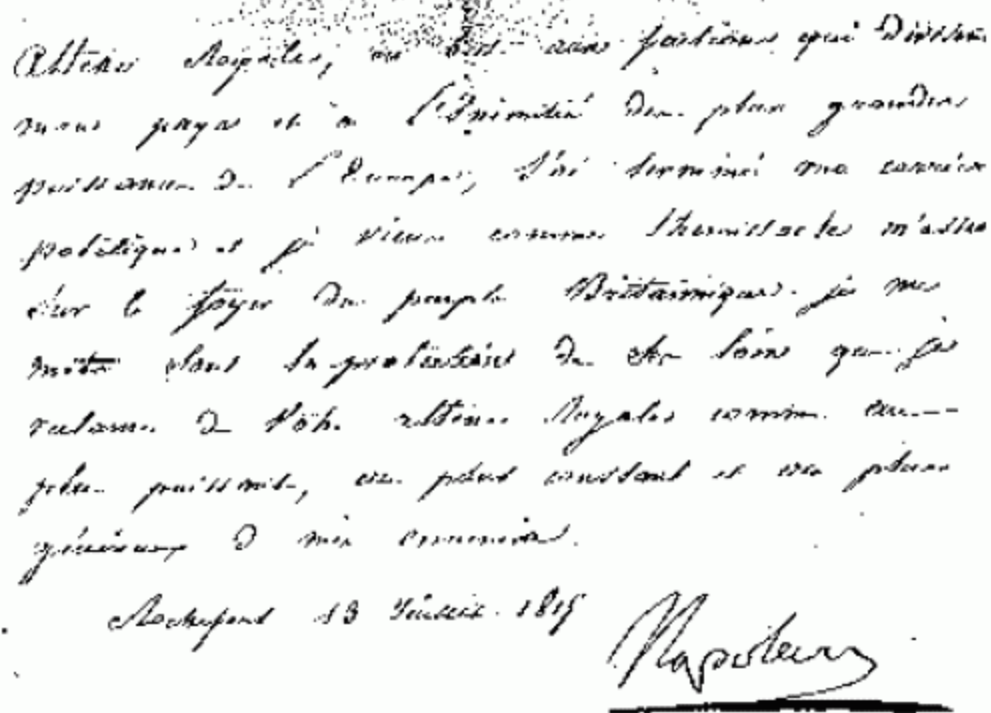 Altesse Royale, en but aux factions qui divisent
mon pays et à l'Inimitié des plus grandes
puissances de l'Europe, j'ai terminé ma carrière
politique et je viens comme Themistocles m'asseoir
sur le foyer du peuple Britannique. je me
mets sous la protection de ses lois que je
réclame de Votre altesse Royale comme au
plus puissant, au plus constant et au plus
généreux de mes ennemis.
Rochefort 13 Juillet 1815
Napoleon